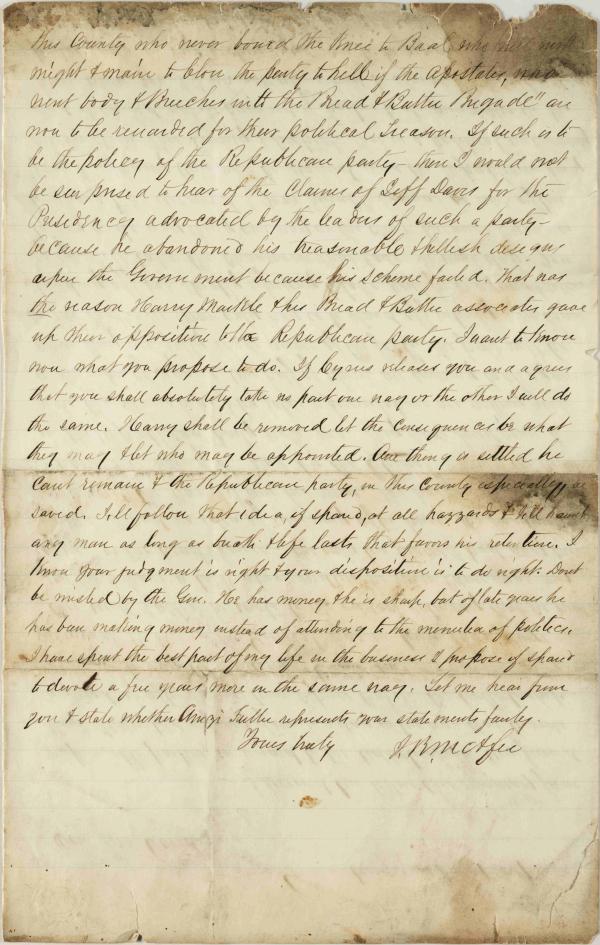 this County who never bowed the Knee to Baal, who
might & main to blow the party to hell if the apostates, who
went body & Breeches into the Bread & Butter Brigade" are
now to be rewarded for their political treason. If such is to
be the policy of the Republican party – then I would not
be surprised to hear of the Claims of Jeff Davis for the
Presidency advocated by the leaders of such a party –
because he abandoned his treasonable & hellish designs
upon the Government because his scheme failed. That was
the reason Harry Markle & his Bread & Butter associates gave
up their opposition to the Republican party. I want to know
now what you propose to do. If Cyrus releases you and agrees
that you shall absolutely take no part one way or the other I will do
the same. Harry shall be removed let the consequences be what
they may & let who may be appointed. One thing is settled he
cant remain & the Republican party, in this County especially, be
saved. I,ll follow that idea, if spared, at all hazzards & will haunt
any man as long as breath & life lasts, that favors his retention. I
know your judgment is right & your disposition is to do right. Dont
be misled by the Gen. He has money & he is sharp, but of late years he
has been making money instead of attending to the minutea of politics.
I have spent the best part of my life in the business & propose if spared
to devote a few years more in the same way. Let me hear from
you & state whether Amzi Fuller represents your statements fairly.
Yours truly J. R. McAfee